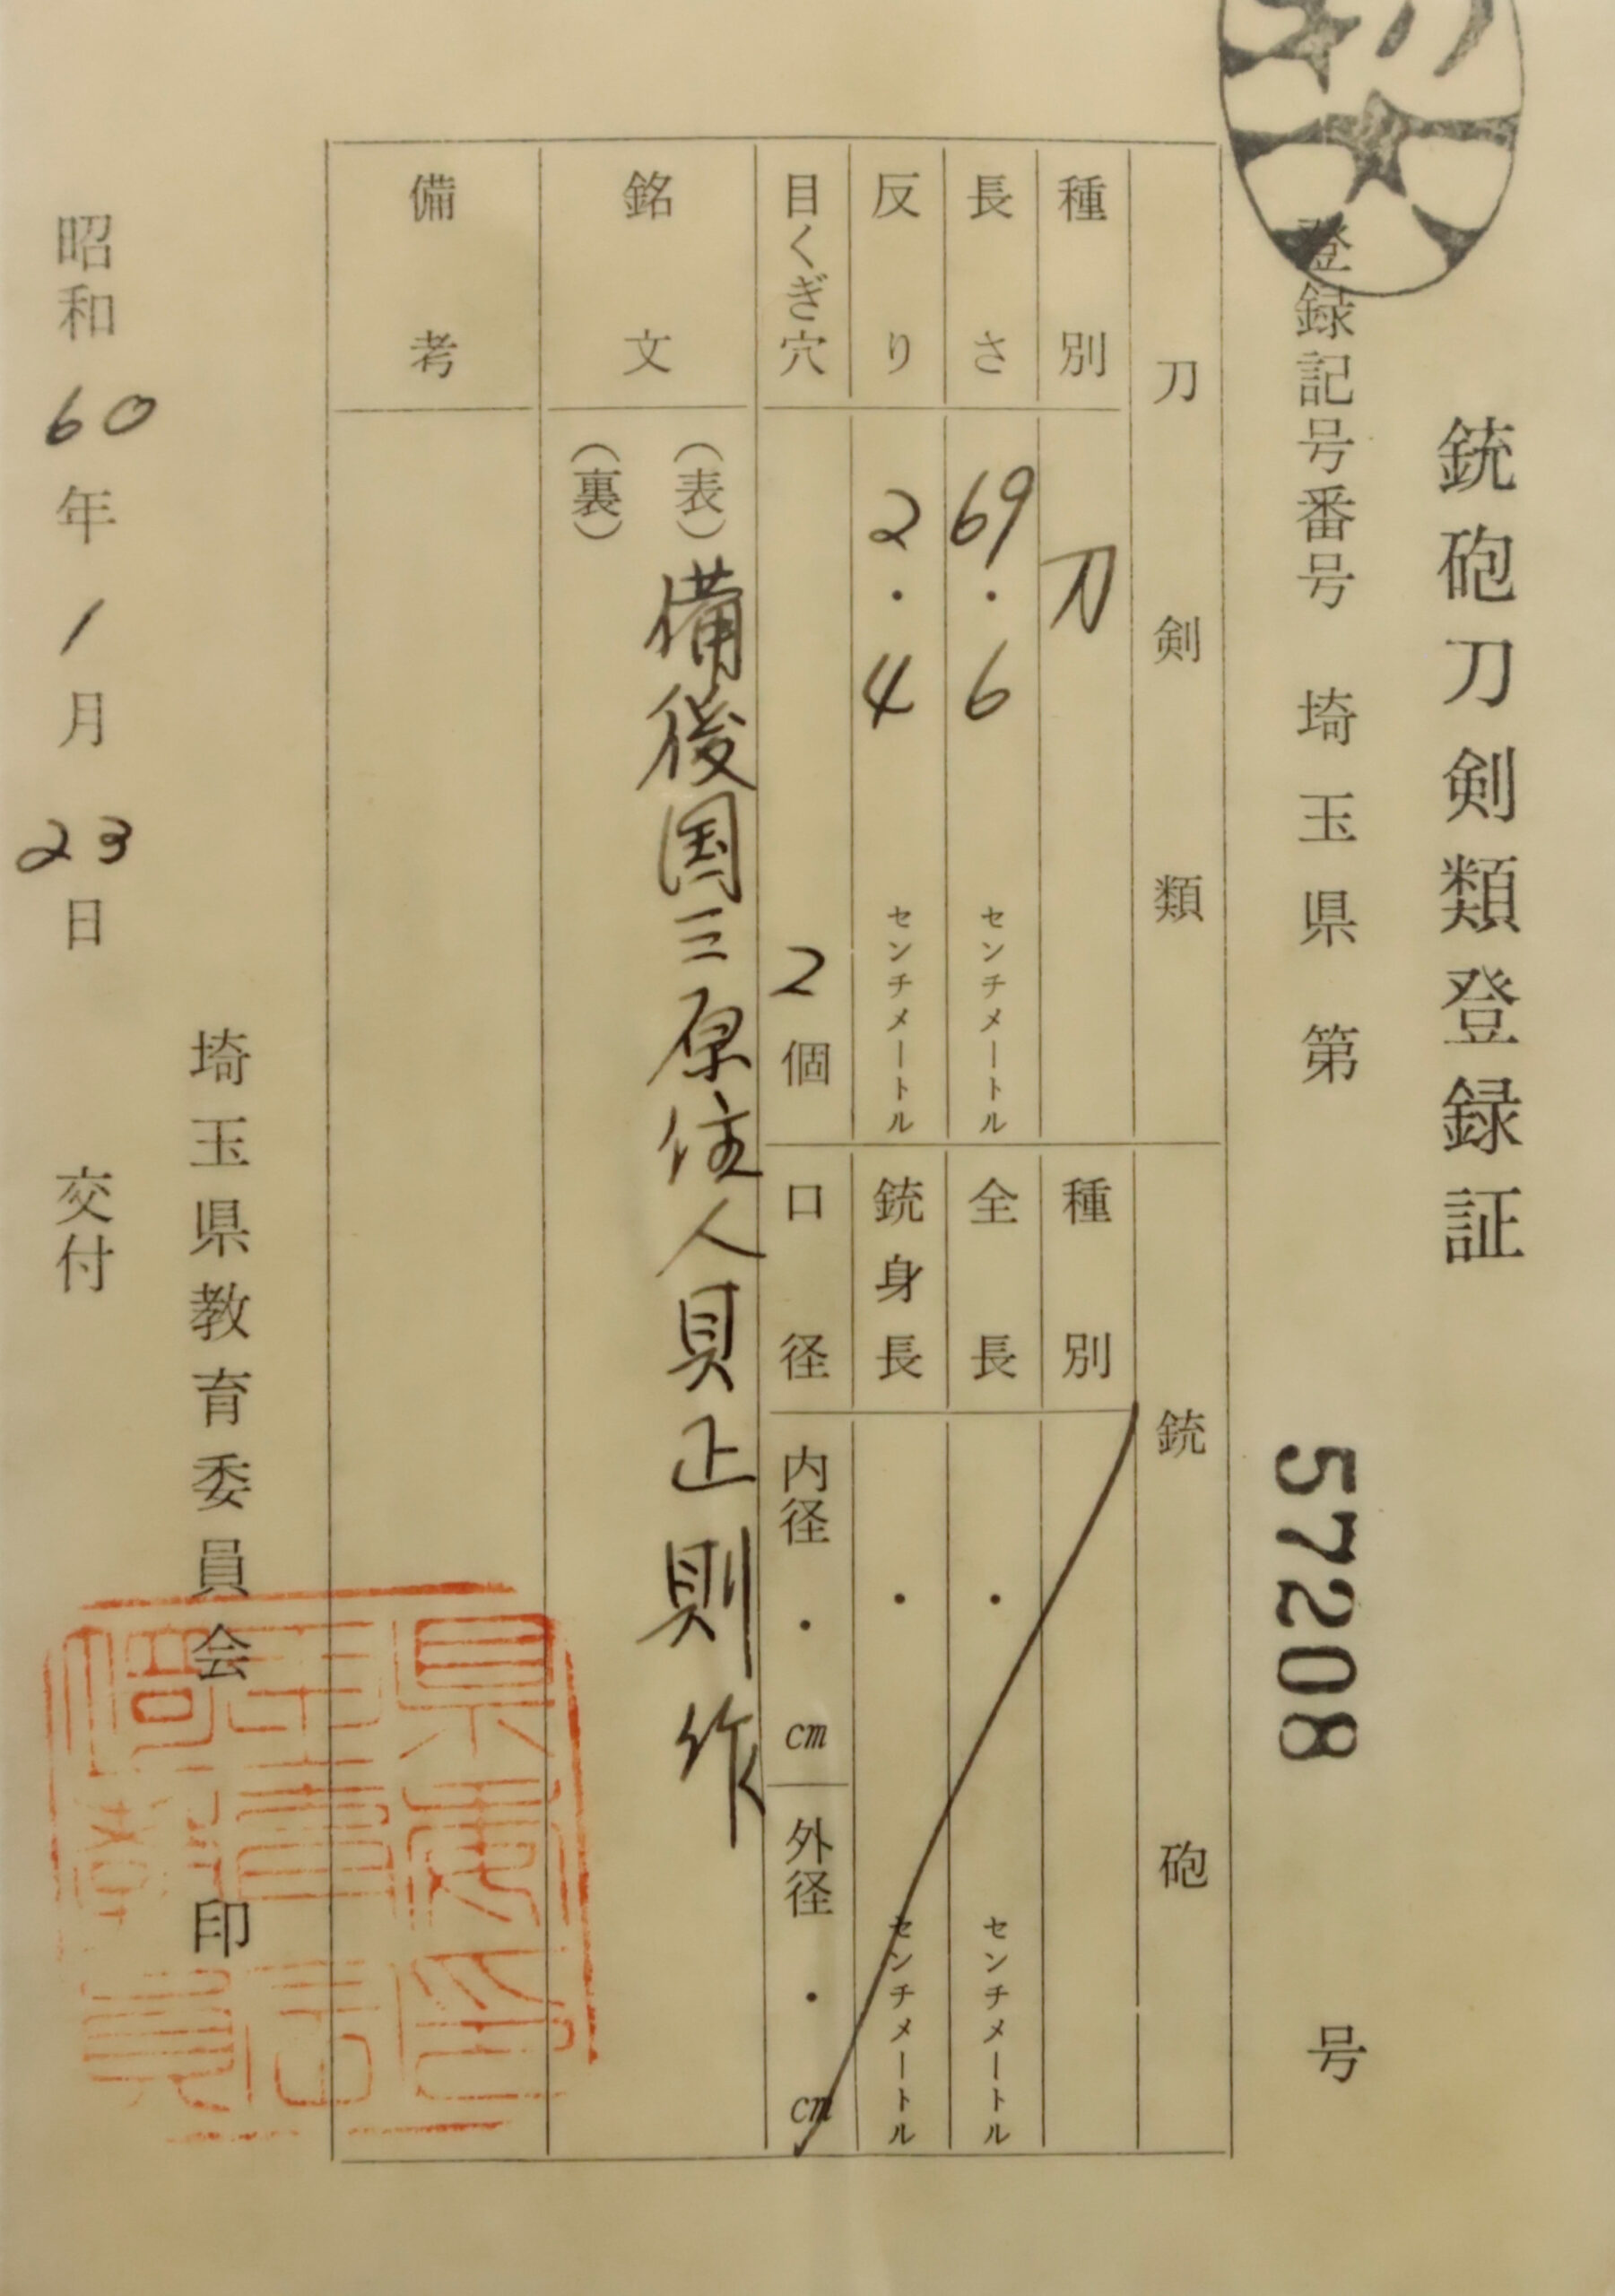 銃砲刀剣類登録証
登録記号番号 埼玉県 第 57208 号
刀剣類
種別 刀
長さ 69.6 センチメートル
反り 2.4 センチメートル
目くぎ穴 2個
銃砲
種別
全長 ・ センチメートル
銃身長 ・ センチメートル
口径 内径 ・ cm 外径 ・ cm
銘文 (表) 備後国三原住人貝正則作
(裏)
備考
埼玉県教育委員会 印
昭和60年1月23日 交付